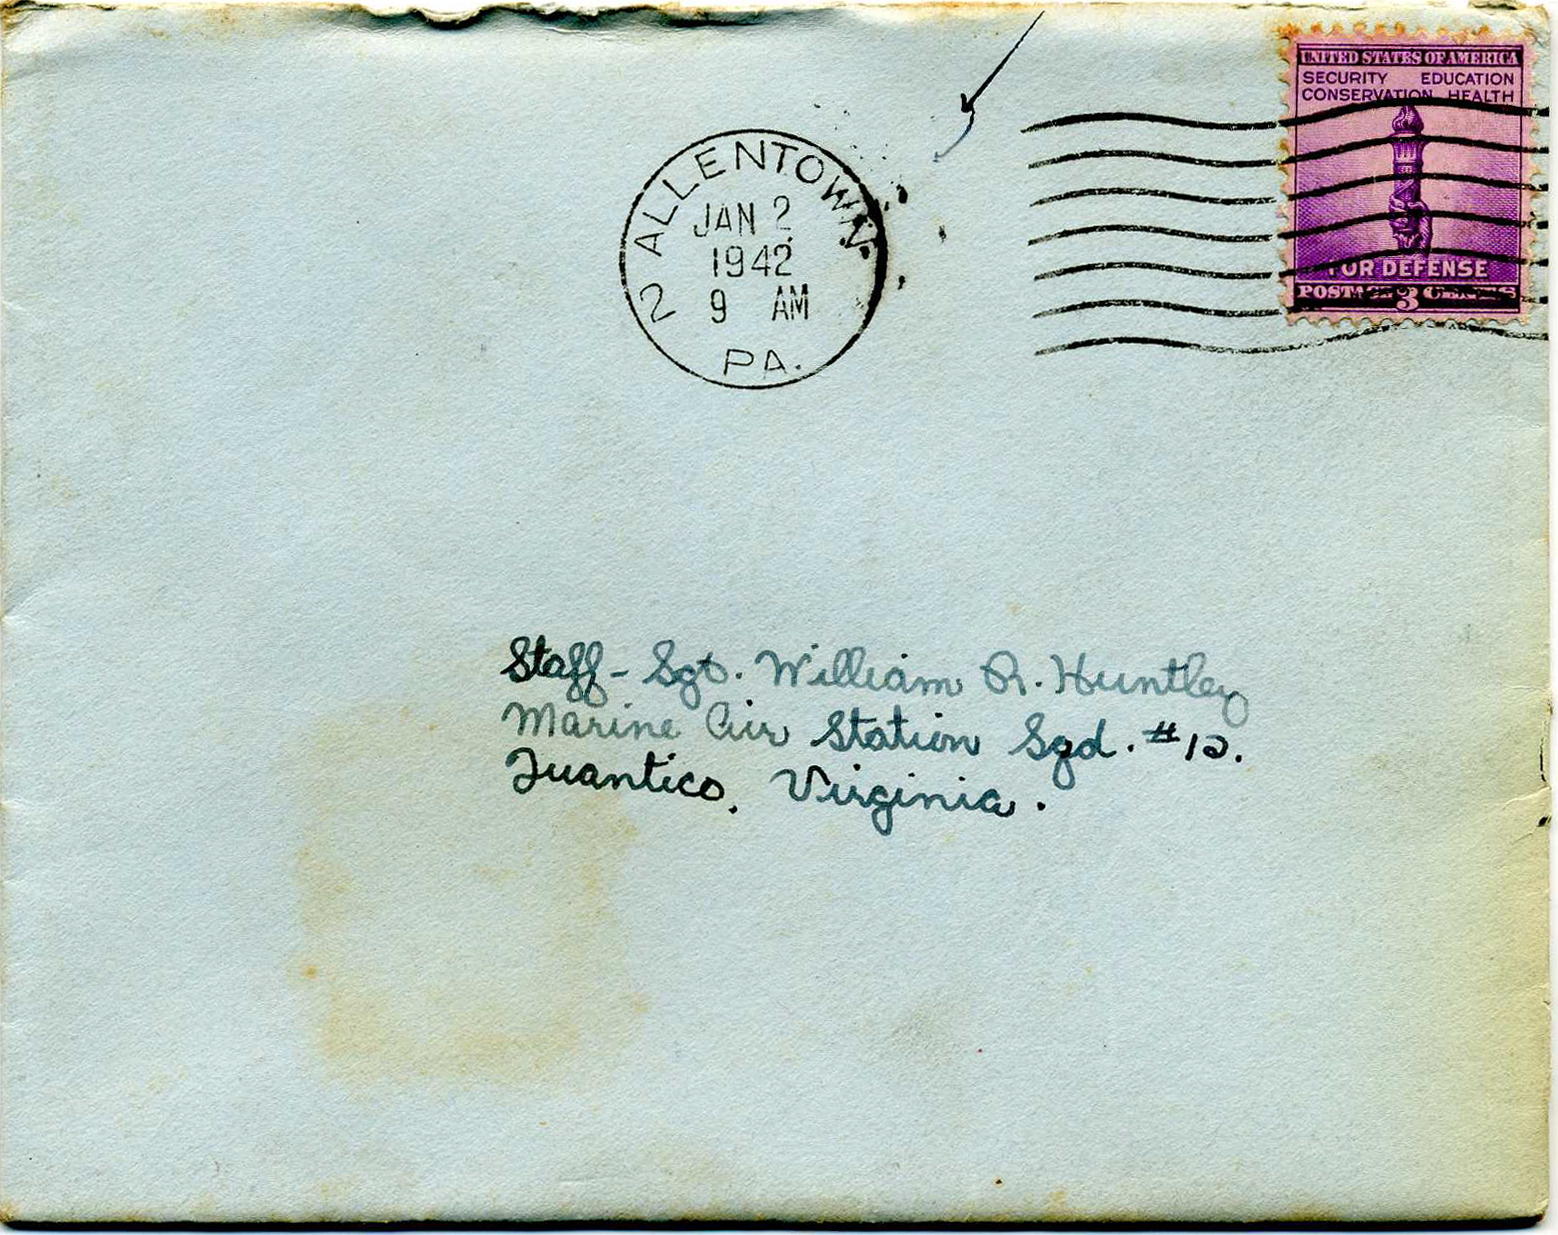 UNITED STATES OF AMERICA
SECURITY EDUCATION
CONSERVATION HEALTH
FOR DEFENSE
POSTAGE 3 CENTS
ALLENTOWN
JAN 2
1942
9 AM
2
PA.
Staff-Sgt. William R. Huntley
Marine Air Station Sqd. #12.
Quantico, Virginia.